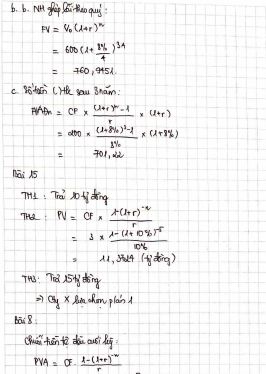 b. b. NH ghép lãi theo quý:
FV = V₀ (1+r)ⁿ
= 600 (1 + 8%/4)^3.4
= 760,9451.
c. Số tiền ( ) sau 3 năm:
= CF × ((1+r)ⁿ - 1)/r × (1+r)
= 200 × ((1+8%)³ - 1)/8% × (1+8%)
= 701,22
Bài 15
TH1: Trả 10 tỷ đồng
TH2: PV = CF × (1-(1+r)⁻ⁿ)/r
= 3 × (1-(1+10%)⁻⁵)/10%
= 11,3724 (tỷ đồng)
TH3: Trả 15 tỷ đồng
⇒ Cty X lựa chọn p/án 1
Bài 8:
Chuỗi tiền tệ đều cuối kỳ:
PVA = CF. (1-(1+r)⁻ⁿ)/r